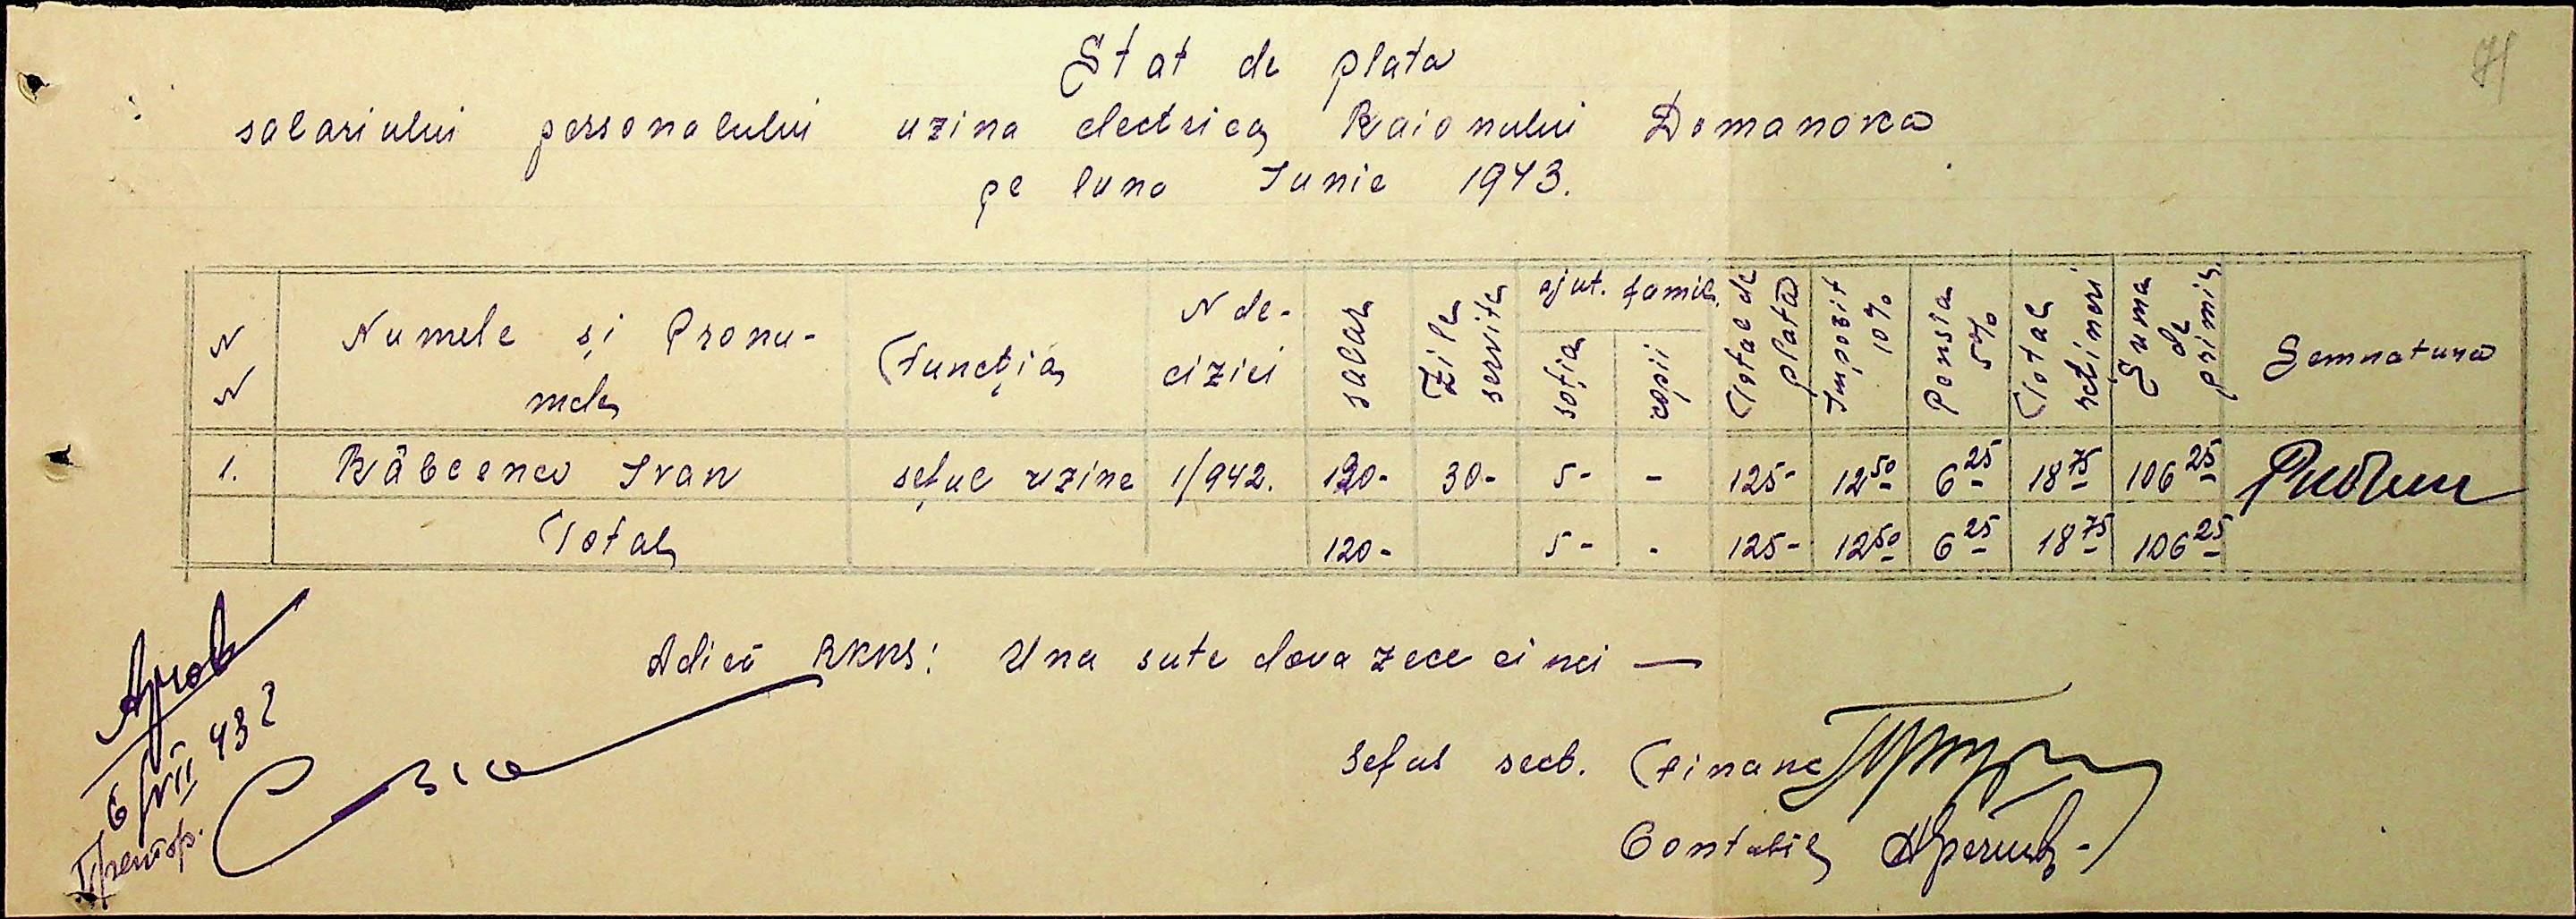 71
Stat de plata
salariului personalului uzina electrica Raionului Domanovca
pe luna Iunie 1943.
N N | Numele și Pronumele | Funcția | N de-cizici | salar | Zile servite | ajut. famil. soția | copii | Total de plata | Impozit 10% | Pensia 5% | Total rețineri | Suma de primir. | Semnatura
1. | Râbcenco Ivan | șeful uzine | 1/942. | 120- | 30- | 5- | - | 125- | 12 50 | 6 25 | 18 75 | 106 25
Total | 120- | 5- | - | 125- | 12 50 | 6 25 | 18 75 | 106 25
Adică RKKS: Una sute doua zece cinci —
6/VII 43 г
Претор.
Seful secț. Financ
Contabil